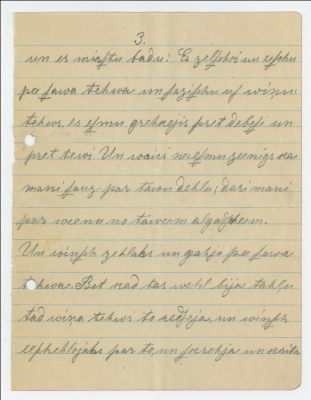 3.
un es mirstu badu: Es zelschos un eeschu
pee sawa tehwa un sazischu us winu:
tehws, es esmu grehkojis pret debesi un
pret tewi Un wairs ne esmu zeenigs ka
mani sauz par tawu dehlu; dari mani
par weenu no taweem algadscheem.
Un winsch zehlahs un gahja pee sawa
tehwa. Bet kad tas wehl bija tahlu
tad wina tehws to redseja, un winsch
eeschehlojahs par to, un skrehja un krita